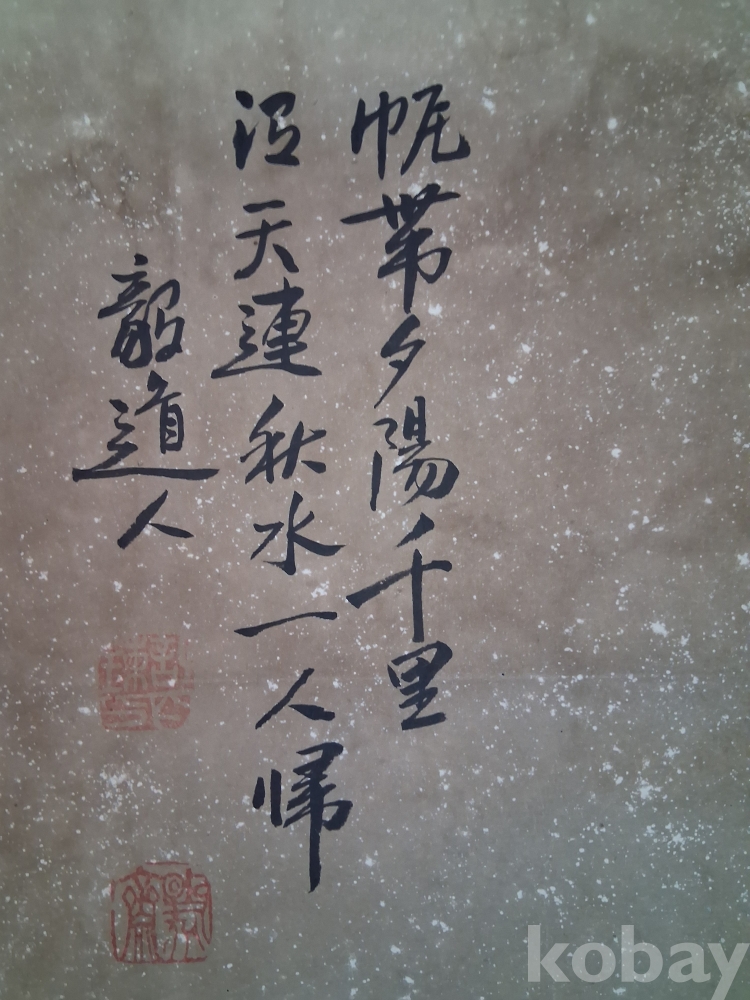 帆帶夕陽千里
沒天連秋水一人歸
毅道人
kobay